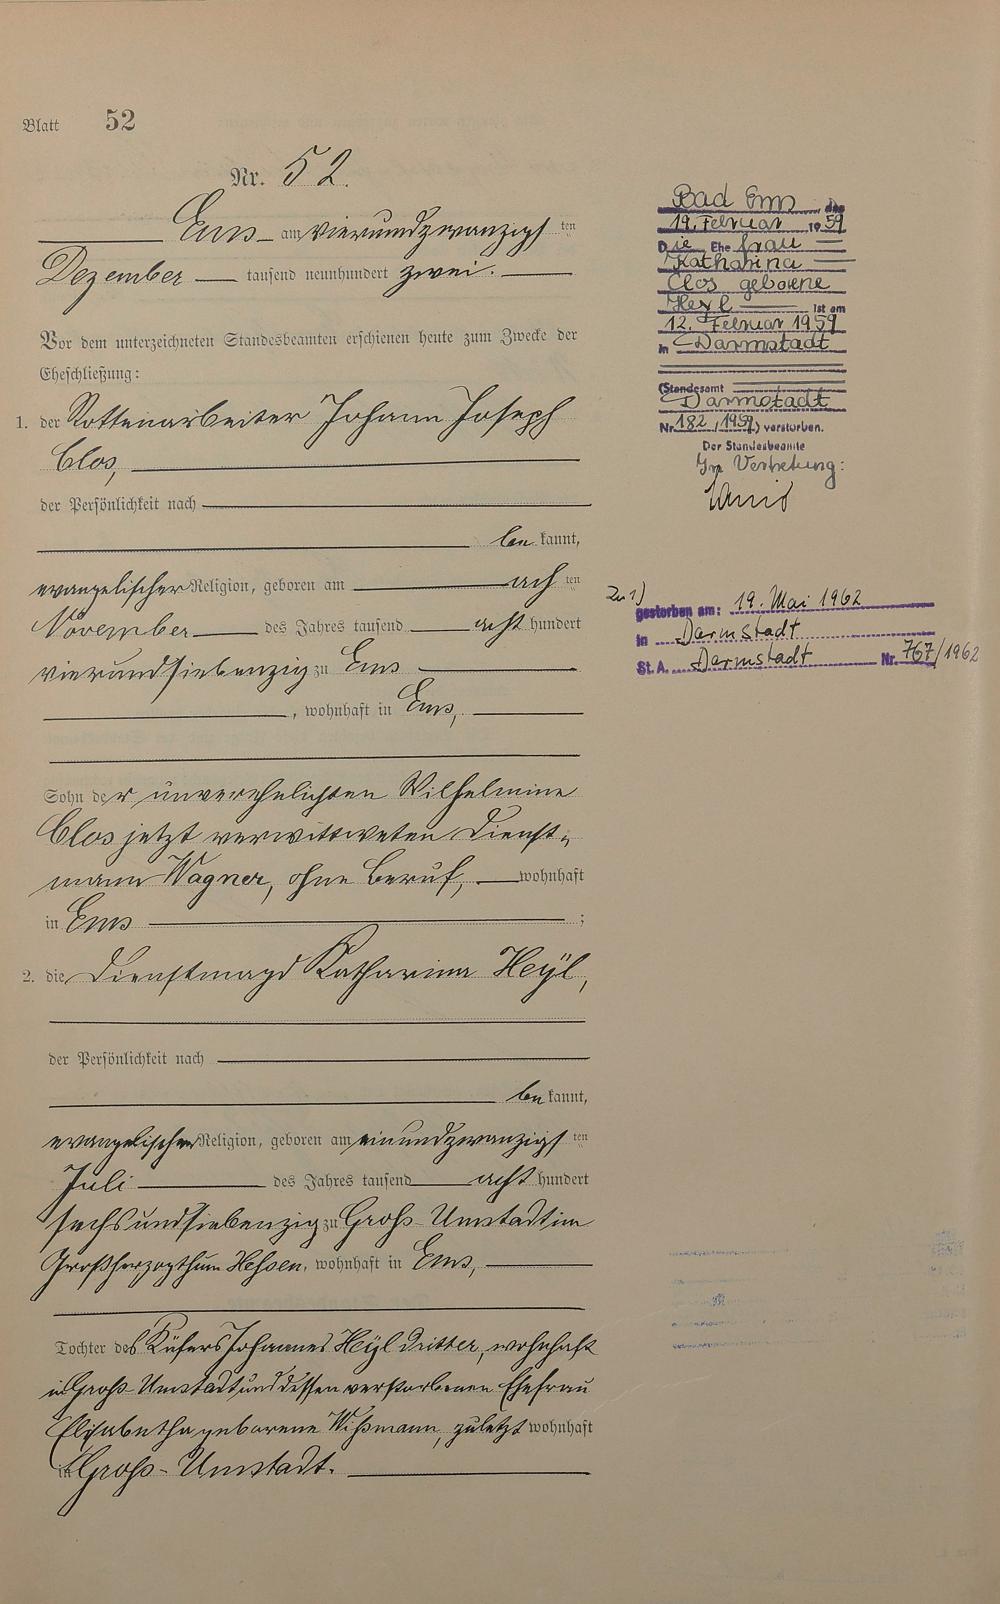 Blatt 52
Nr. 52.
Ems am vierundzwanzigsten
Dezember tausend neunhundert zwei.
Vor dem unterzeichneten Standesbeamten erschienen heute zum Zwecke der
Eheschließung:
1. der Rottenarbeiter Johann Joseph
Clos,
der Persönlichkeit nach
bekannt,
evangelischer Religion, geboren am achten
November des Jahres tausend achthundert
vierundsiebenzig zu Ems
, wohnhaft in Ems,
Sohn der unverehelichten Wilhelmine
Clos jetzt verwittweten Dienst-
mann Wagner, ohne Beruf, wohnhaft
in Ems ;
2. die Dienstmagd Katharina Heÿl,
der Persönlichkeit nach
bekannt,
evangelischer Religion, geboren am einundzwanzigsten
Juli des Jahres tausend achthundert
sechsundsiebenzig zu Groß-Umstadt im
Großherzogthum Hessen, wohnhaft in Ems,
Tochter des Küfers Johannes Heÿl dritter, wohnhaft
in Groß-Umstadt und dessen verstorbenen Ehefrau
Elisabetha geborene Wißmann, zuletzt wohnhaft
in Groß-Umstadt.
Bad Ems, den
19. Februar 1959
Die Ehefrau
Katharina
Clos geborene
Heyl ist am
12. Februar 1959
in Darmstadt
(Standesamt
Darmstadt
Nr. 182/1959.) verstorben.
Der Standesbeamte
In Vertretung:
Zu 1)
gestorben am: 19. Mai 1962
in Darmstadt
St. A. Darmstadt Nr. 767/1962